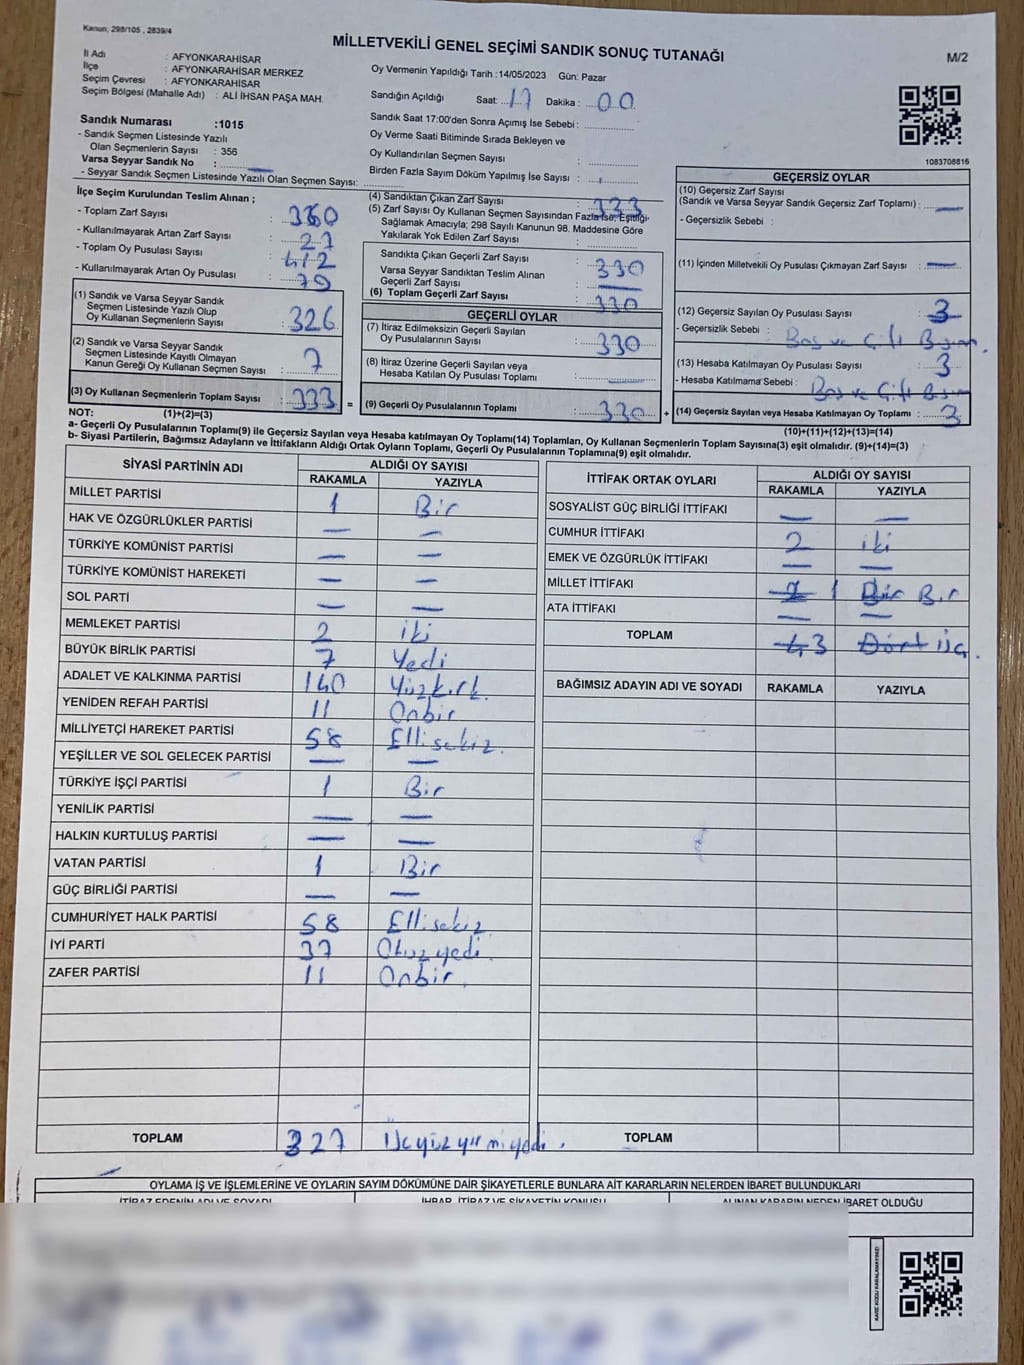 Kanun; 298/105 , 2839/4
MİLLETVEKİLİ GENEL SEÇİMİ SANDIK SONUÇ TUTANAĞI
M/2
İl Adı : AFYONKARAHİSAR
İlçe : AFYONKARAHİSAR MERKEZ
Seçim Çevresi : AFYONKARAHİSAR
Seçim Bölgesi (Mahalle Adı) : ALİ İHSAN PAŞA MAH.
Sandık Numarası :1015
- Sandık Seçmen Listesinde Yazılı
Olan Seçmenlerin Sayısı : 356
Varsa Seyyar Sandık No : —
- Seyyar Sandık Seçmen Listesinde Yazılı Olan Seçmen Sayısı:
Oy Vermenin Yapıldığı Tarih :14/05/2023 Gün: Pazar
Sandığın Açıldığı Saat: 17 Dakika : 00
Sandık Saat 17:00'den Sonra Açımış İse Sebebi :
Oy Verme Saati Bitiminde Sırada Bekleyen ve
Oy Kullandırılan Seçmen Sayısı :
Birden Fazla Sayım Döküm Yapılmış İse Sayısı :
1083708816
İlçe Seçim Kurulundan Teslim Alınan ;
- Toplam Zarf Sayısı : 360
- Kullanılmayarak Artan Zarf Sayısı : 27
- Toplam Oy Pusulası Sayısı : 412
- Kullanılmayarak Artan Oy Pusulası : 79
(1) Sandık ve Varsa Seyyar Sandık
Seçmen Listesinde Yazılı Olup
Oy Kullanan Seçmenlerin Sayısı : 326
(2) Sandık ve Varsa Seyyar Sandık
Seçmen Listesinde Kayıtlı Olmayan
Kanun Gereği Oy Kullanan Seçmen Sayısı : 7
(3) Oy Kullanan Seçmenlerin Toplam Sayısı : 333
(4) Sandıktan Çıkan Zarf Sayısı : 333
(5) Zarf Sayısı Oy Kullanan Seçmen Sayısından Fazla İse, Eşitliği
Sağlamak Amacıyla; 298 Sayılı Kanunun 98. Maddesine Göre
Yakılarak Yok Edilen Zarf Sayısı :
Sandıkta Çıkan Geçerli Zarf Sayısı : 330
Varsa Seyyar Sandıktan Teslim Alınan
Geçerli Zarf Sayısı : —
(6) Toplam Geçerli Zarf Sayısı : 330
GEÇERLİ OYLAR
(7) İtiraz Edilmeksizin Geçerli Sayılan
Oy Pusulalarının Sayısı : 330
(8) İtiraz Üzerine Geçerli Sayılan veya
Hesaba Katılan Oy Pusulası Toplamı : —
= (9) Geçerli Oy Pusulalarının Toplamı : 330 +
GEÇERSİZ OYLAR
(10) Geçersiz Zarf Sayısı
(Sandık ve Varsa Seyyar Sandık Geçersiz Zarf Toplamı) : —
- Geçersizlik Sebebi :
(11) İçinden Milletvekili Oy Pusulası Çıkmayan Zarf Sayısı : —
(12) Geçersiz Sayılan Oy Pusulası Sayısı : 3
- Geçersizlik Sebebi : Boş ve Çift Basım.
(13) Hesaba Katılmayan Oy Pusulası Sayısı : 3
- Hesaba Katılmama Sebebi : Boş ve Çift Basım
(14) Geçersiz Sayılan veya Hesaba Katılmayan Oy Toplamı : 3
NOT: (1)+(2)=(3)
(10)+(11)+(12)+(13)=(14)
a- Geçerli Oy Pusulasının Toplamı(9) ile Geçersiz Sayılan veya Hesaba katılmayan Oy Toplamı(14) Toplamları, Oy Kullanan Seçmenlerin Toplam Sayısına(3) eşit olmalıdır. (9)+(14)=(3)
b- Siyasi Partilerin, Bağımsız Adayların ve İttifakların Aldığı Ortak Oyların Toplamı, Geçerli Oy Pusulalarının Toplamına(9) eşit olmalıdır.
SİYASİ PARTİNİN ADI ALDIĞI OY SAYISI
RAKAMLA YAZIYLA
MİLLET PARTİSİ 1 Bir
HAK VE ÖZGÜRLÜKLER PARTİSİ — —
TÜRKİYE KOMÜNİST PARTİSİ — —
TÜRKİYE KOMÜNİST HAREKETİ — —
SOL PARTİ — —
MEMLEKET PARTİSİ 2 iki
BÜYÜK BİRLİK PARTİSİ 7 Yedi
ADALET VE KALKINMA PARTİSİ 140 Yüzkırk
YENİDEN REFAH PARTİSİ 11 Onbir
MİLLİYETÇİ HAREKET PARTİSİ 58 Ellisekiz.
YEŞİLLER VE SOL GELECEK PARTİSİ — —
TÜRKİYE İŞÇİ PARTİSİ 1 Bir
YENİLİK PARTİSİ — —
HALKIN KURTULUŞ PARTİSİ — —
VATAN PARTİSİ 1 Bir
GÜÇ BİRLİĞİ PARTİSİ — —
CUMHURİYET HALK PARTİSİ 58 Ellisekiz
İYİ PARTİ 37 Otuzyedi.
ZAFER PARTİSİ 11 Onbir
TOPLAM 327 Üçyüzyirmiyedi.
İTTİFAK ORTAK OYLARI ALDIĞI OY SAYISI
RAKAMLA YAZIYLA
SOSYALİST GÜÇ BİRLİĞİ İTTİFAKI — —
CUMHUR İTTİFAKI 2 iki
EMEK VE ÖZGÜRLÜK İTTİFAKI — —
MİLLET İTTİFAKI 1 Bir Bir
ATA İTTİFAKI — —
TOPLAM 4 3 Dört üç.
BAĞIMSIZ ADAYIN ADI VE SOYADI RAKAMLA YAZIYLA
TOPLAM
OYLAMA İŞ VE İŞLEMLERİNE VE OYLARIN SAYIM DÖKÜMÜNE DAİR ŞİKAYETLERLE BUNLARA AİT KARARLARIN NELERDEN İBARET BULUNDUKLARI
İTİRAZ EDENİN ADI VE SOYADI İHBAR, İTİRAZ VE ŞİKAYETİN KONUSU ALINAN KARARIN NEDEN İBARET OLDUĞU
KARE KODU KARALAMAYINIZ!